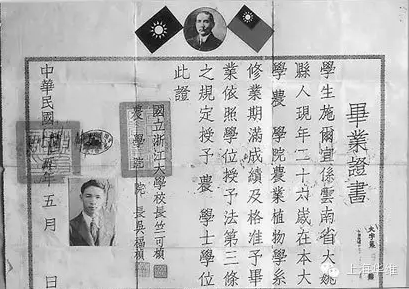 畢業證書
學生施爾宜係雲南省大姚
縣人現年二十六歲在本大
學農學院農業植物學系
修業期滿成績及格准予畢
業依照學位授予法第三條
之規定授予農學士學位
此證
國立浙江大學校長竺可楨
農學院院長吳福楨
中華民國 年五月 日
上海华维